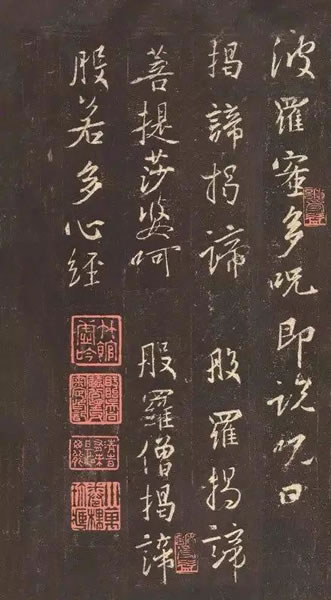 波羅蜜多呪即說呪曰
揭諦揭諦 般羅揭諦
菩提莎婆呵 般羅僧揭諦
般若多心經